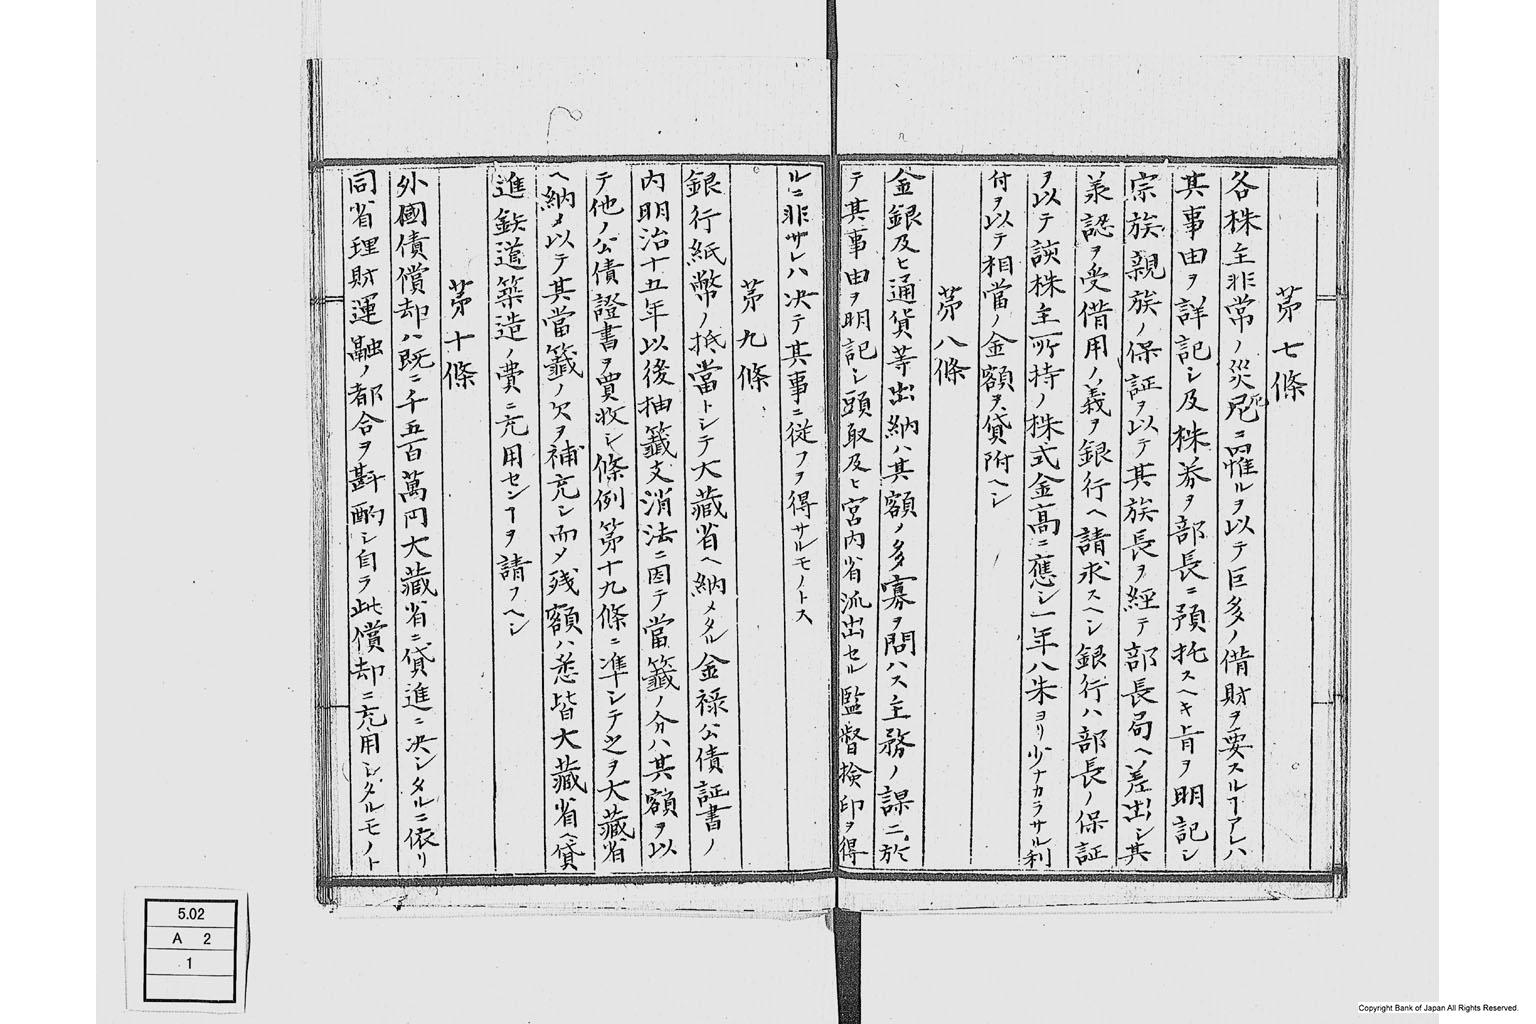 第七條
各株主非常ノ災戹ニ罹ルヲ以テ巨多ノ借財ヲ要スルヿアレハ
其事由ヲ詳記シ及株券ヲ部長ニ預托スヘキ旨ヲ明記シ
宗族親族ノ保証ヲ以テ其族長ヲ経テ部長局ヘ差出シ其
義認ヲ受借用ノ義ヲ銀行ヘ請求スヘシ銀行ハ部長ノ保証
ヲ以テ該株主所持ノ株式金髙ニ應シ一年八朱ヨリ少ナカラサル利
付ヲ以テ相當ノ金額ヲ貸附ヘシ
第八條
金銀及ヒ通貨等出納ハ其額ノ多寡ヲ問ハス主務ノ課ニ於
テ其事由ヲ明記シ頭取及ヒ宮内省派出セル監督検印ヲ得
ルニ非サレハ决テ其事ニ従フヲ得サルモノトス
第九條
銀行紙幣ノ抵當トシテ大藏省ヘ納メタル金禄公債証書ノ
内明治十五年以後抽籤支消法ニ因テ當籤ノ分ハ其額ヲ以
テ他ノ公債證書ヲ買收シ條例第十九條ニ準シテ之ヲ大藏省
ヘ納メ以テ其當籤ノ欠ヲ補充シ而メ残額ハ悉皆大藏省ヘ貸
進鉄道築造ノ費ニ充用センヿヲ請フヘシ
第十條
外國債償却ハ既ニ千五百萬円大藏省ニ貸進ニ决シタルニ依リ
同省理財運融ノ都合ヲ斟酌シ自ラ此償却ニ充用シタルモノト
5.02
A 2
1
Copyright Bank of Japan All Rights Reserved.